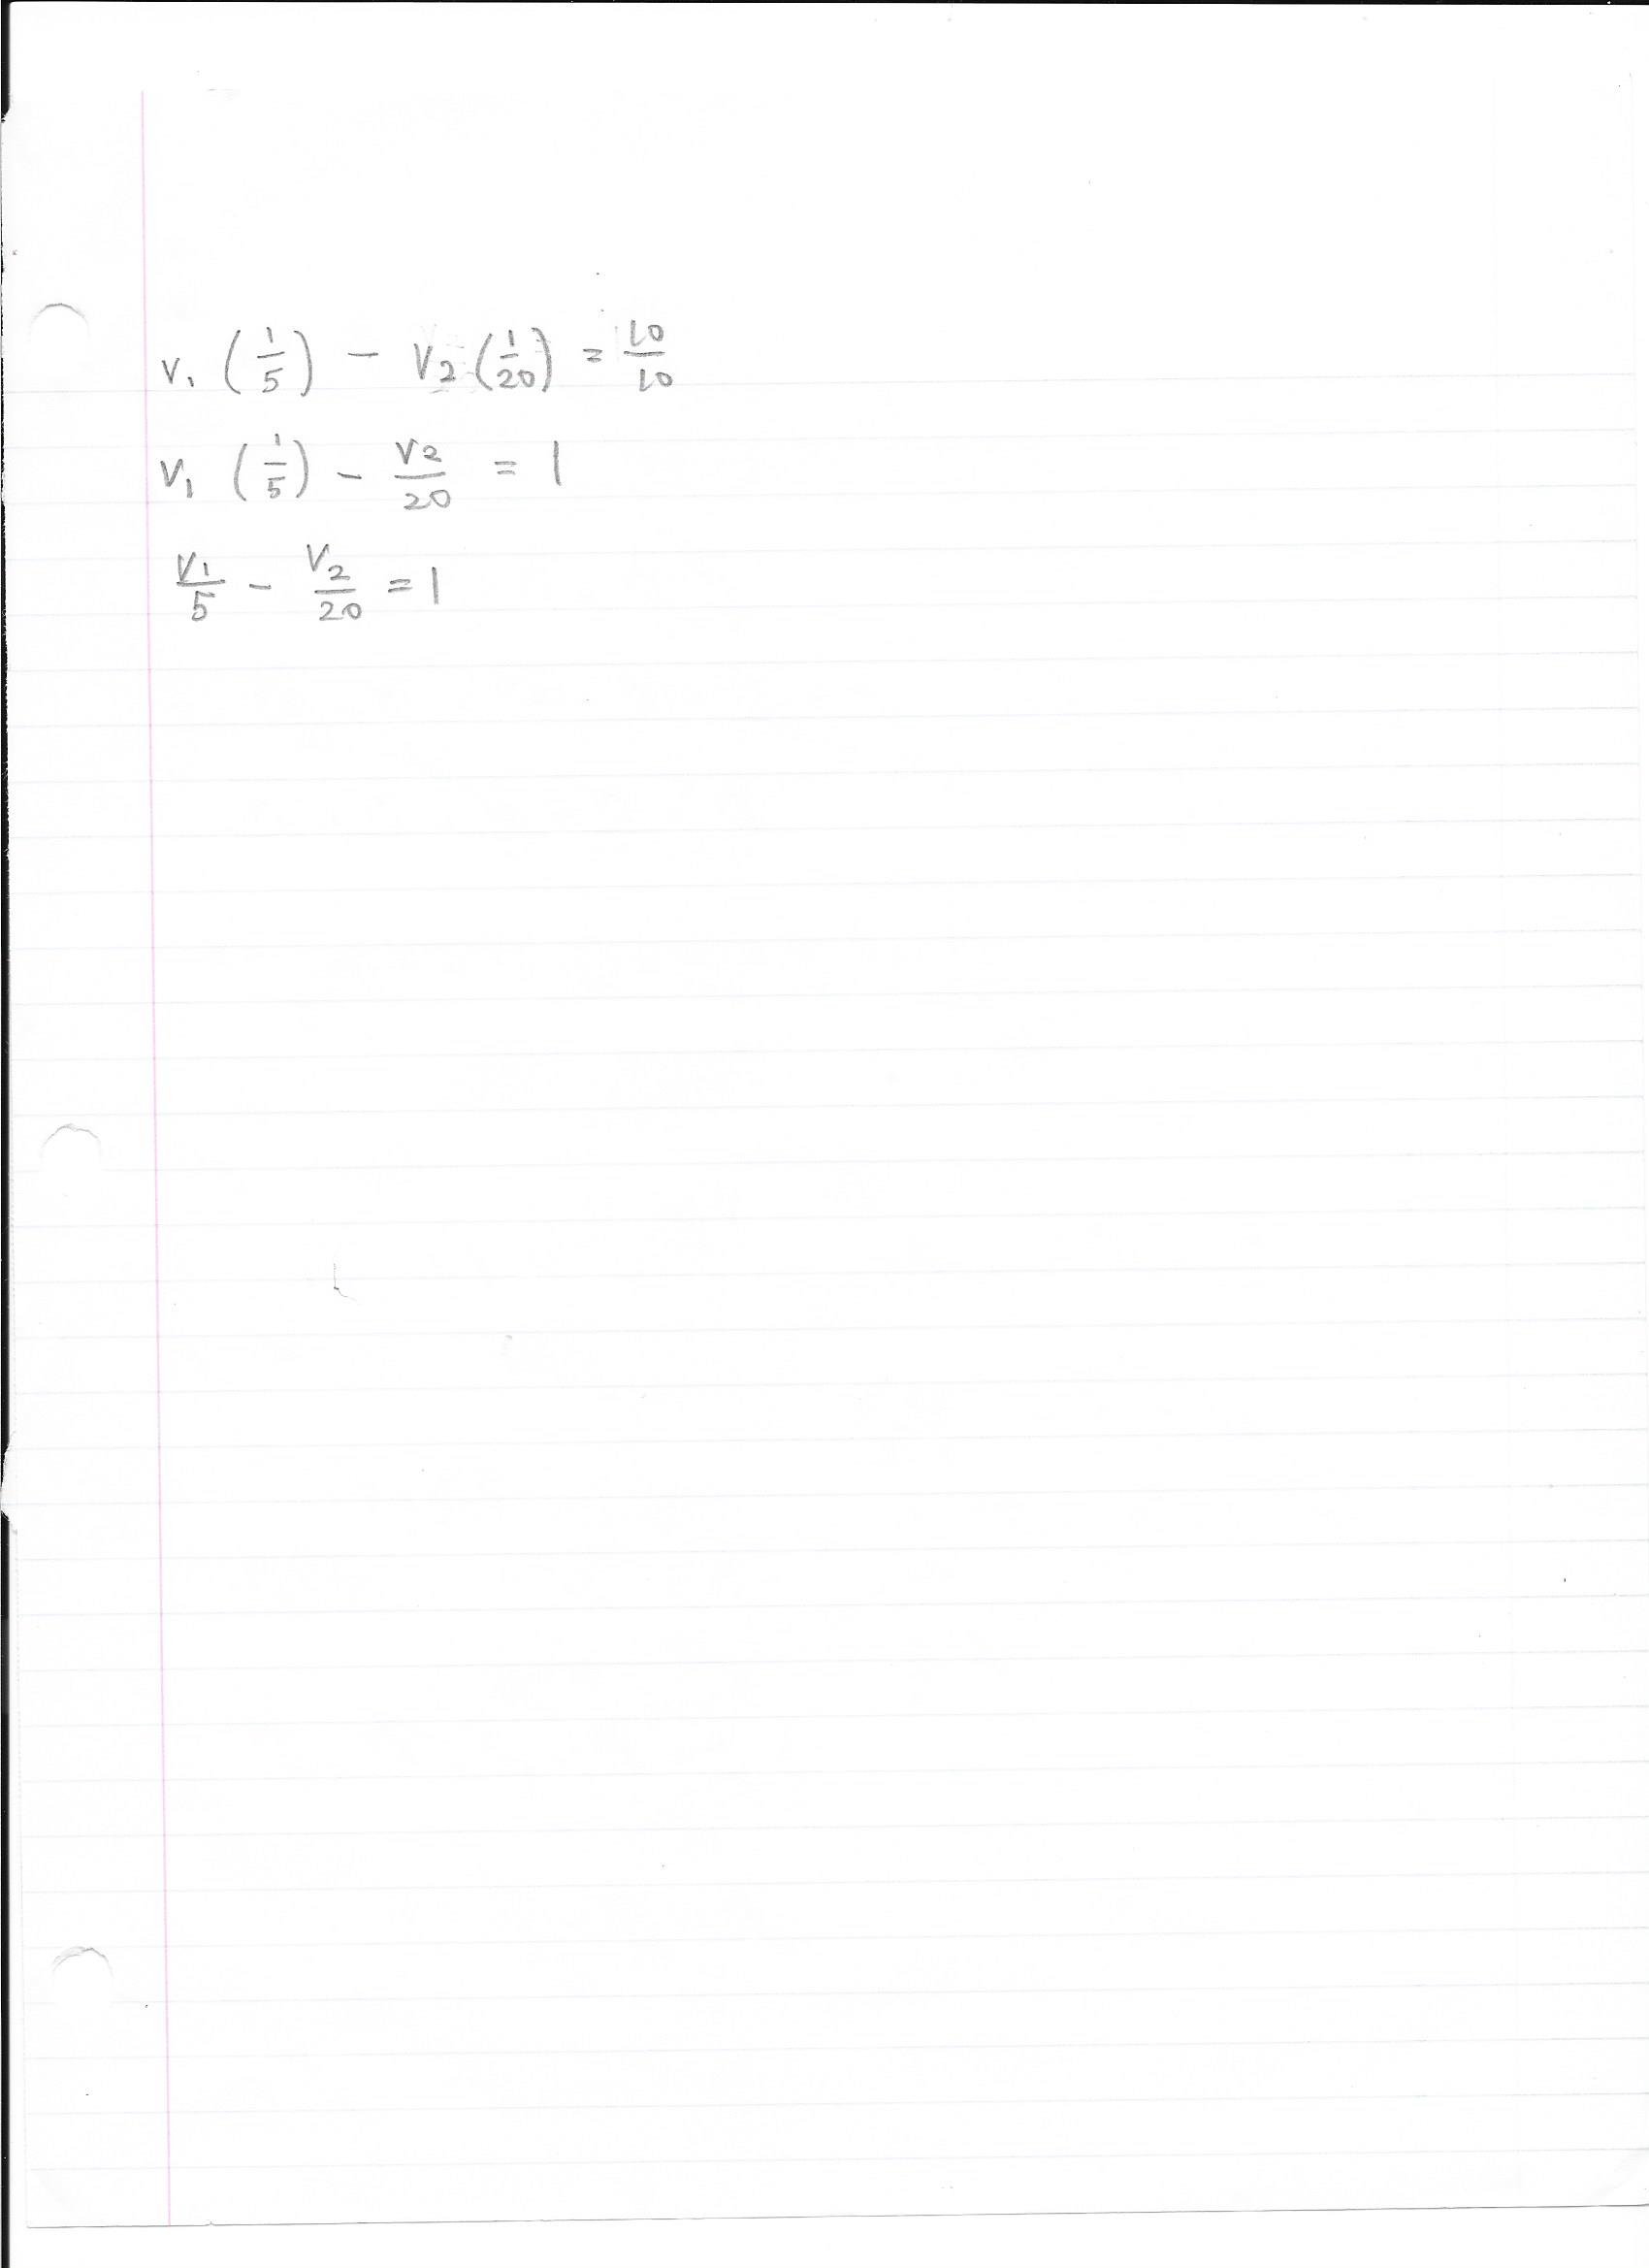 V₁ (1/5) - V₂ (1/20) = 10/10
V₁ (1/5) - V₂/20 = 1
V₁/5 - V₂/20 = 1